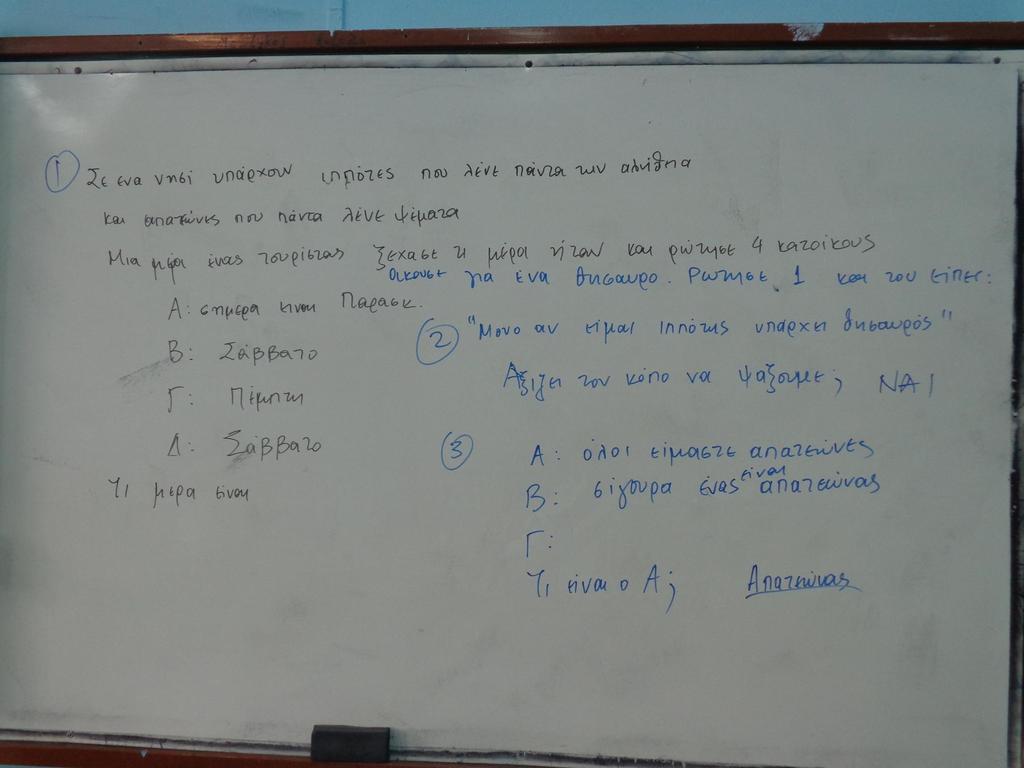 1 Σε ενα νησί υπάρχουν ιππότες που λένε πάντα την αλήθεια
και απατεώνες που πάντα λένε ψέματα
Μια μέρα ένας τουρίστας ξεχασε τι μέρα ήταν και ρώτησε 4 κατοίκους
Α: σημερα ειναι Παρασκ.
Β: Σάββατο
Γ: Πέμπτη
Δ: Σάββατο
Τι μερα ειναι
ακουσε για ένα θησαυρο. Ρωτησε 1 και του είπε:
2 "Μονο αν είμαι ιππότης υπάρχει θησαυρός"
Αξιζει τον κόπο να ψαξουμε; ΝΑΙ
3 Α: όλοι είμαστε απατεώνες
Β: σίγουρα ένας είναι απατεώνας
Γ:
Τι είναι ο Α; Απατεώνας